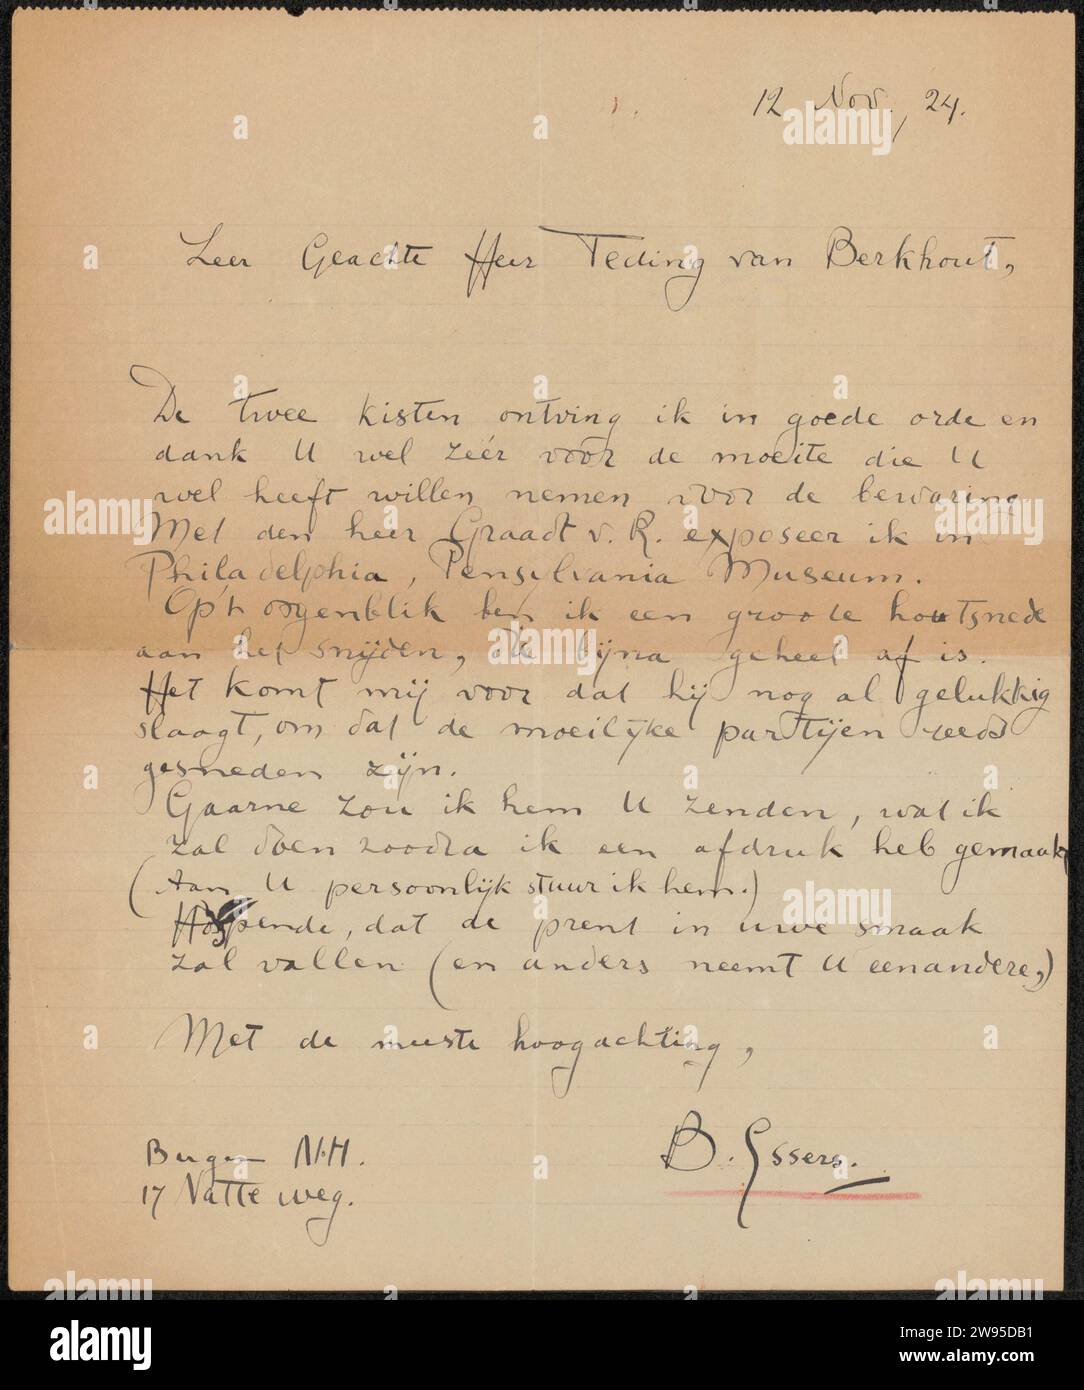 12 Nov., 24.
Zeer Geachte Heer Teding van Berkhout,
De twee kisten ontving ik in goede orde en
dank U wel zéér voor de moeite die U
wel heeft willen nemen voor de bewaring
Met den heer Graadt v. R. exposeer ik in
Philadelphia, Pensylvania Museum.
Op't oogenblik ben ik een groote houtsnede
aan het snijden, die bijna geheel af is.
Het komt mij voor dat hij nog al gelukkig
slaagt, om dat de moeilijke partijen reeds
gesneden zijn.
Gaarne zou ik hem U zenden, wat ik
zal doen zoodra ik een afdruk heb gemaakt
(Aan U persoonlijk stuur ik hem.)
Hopende, dat de prent in uwe smaak
zal vallen (en anders neemt U een andere,)
Met de meeste hoogachting,
B. Essers.
Bergen N.H.
17 Natteweg.
alamy
Image ID: 2W95DB1
www.alamy.com